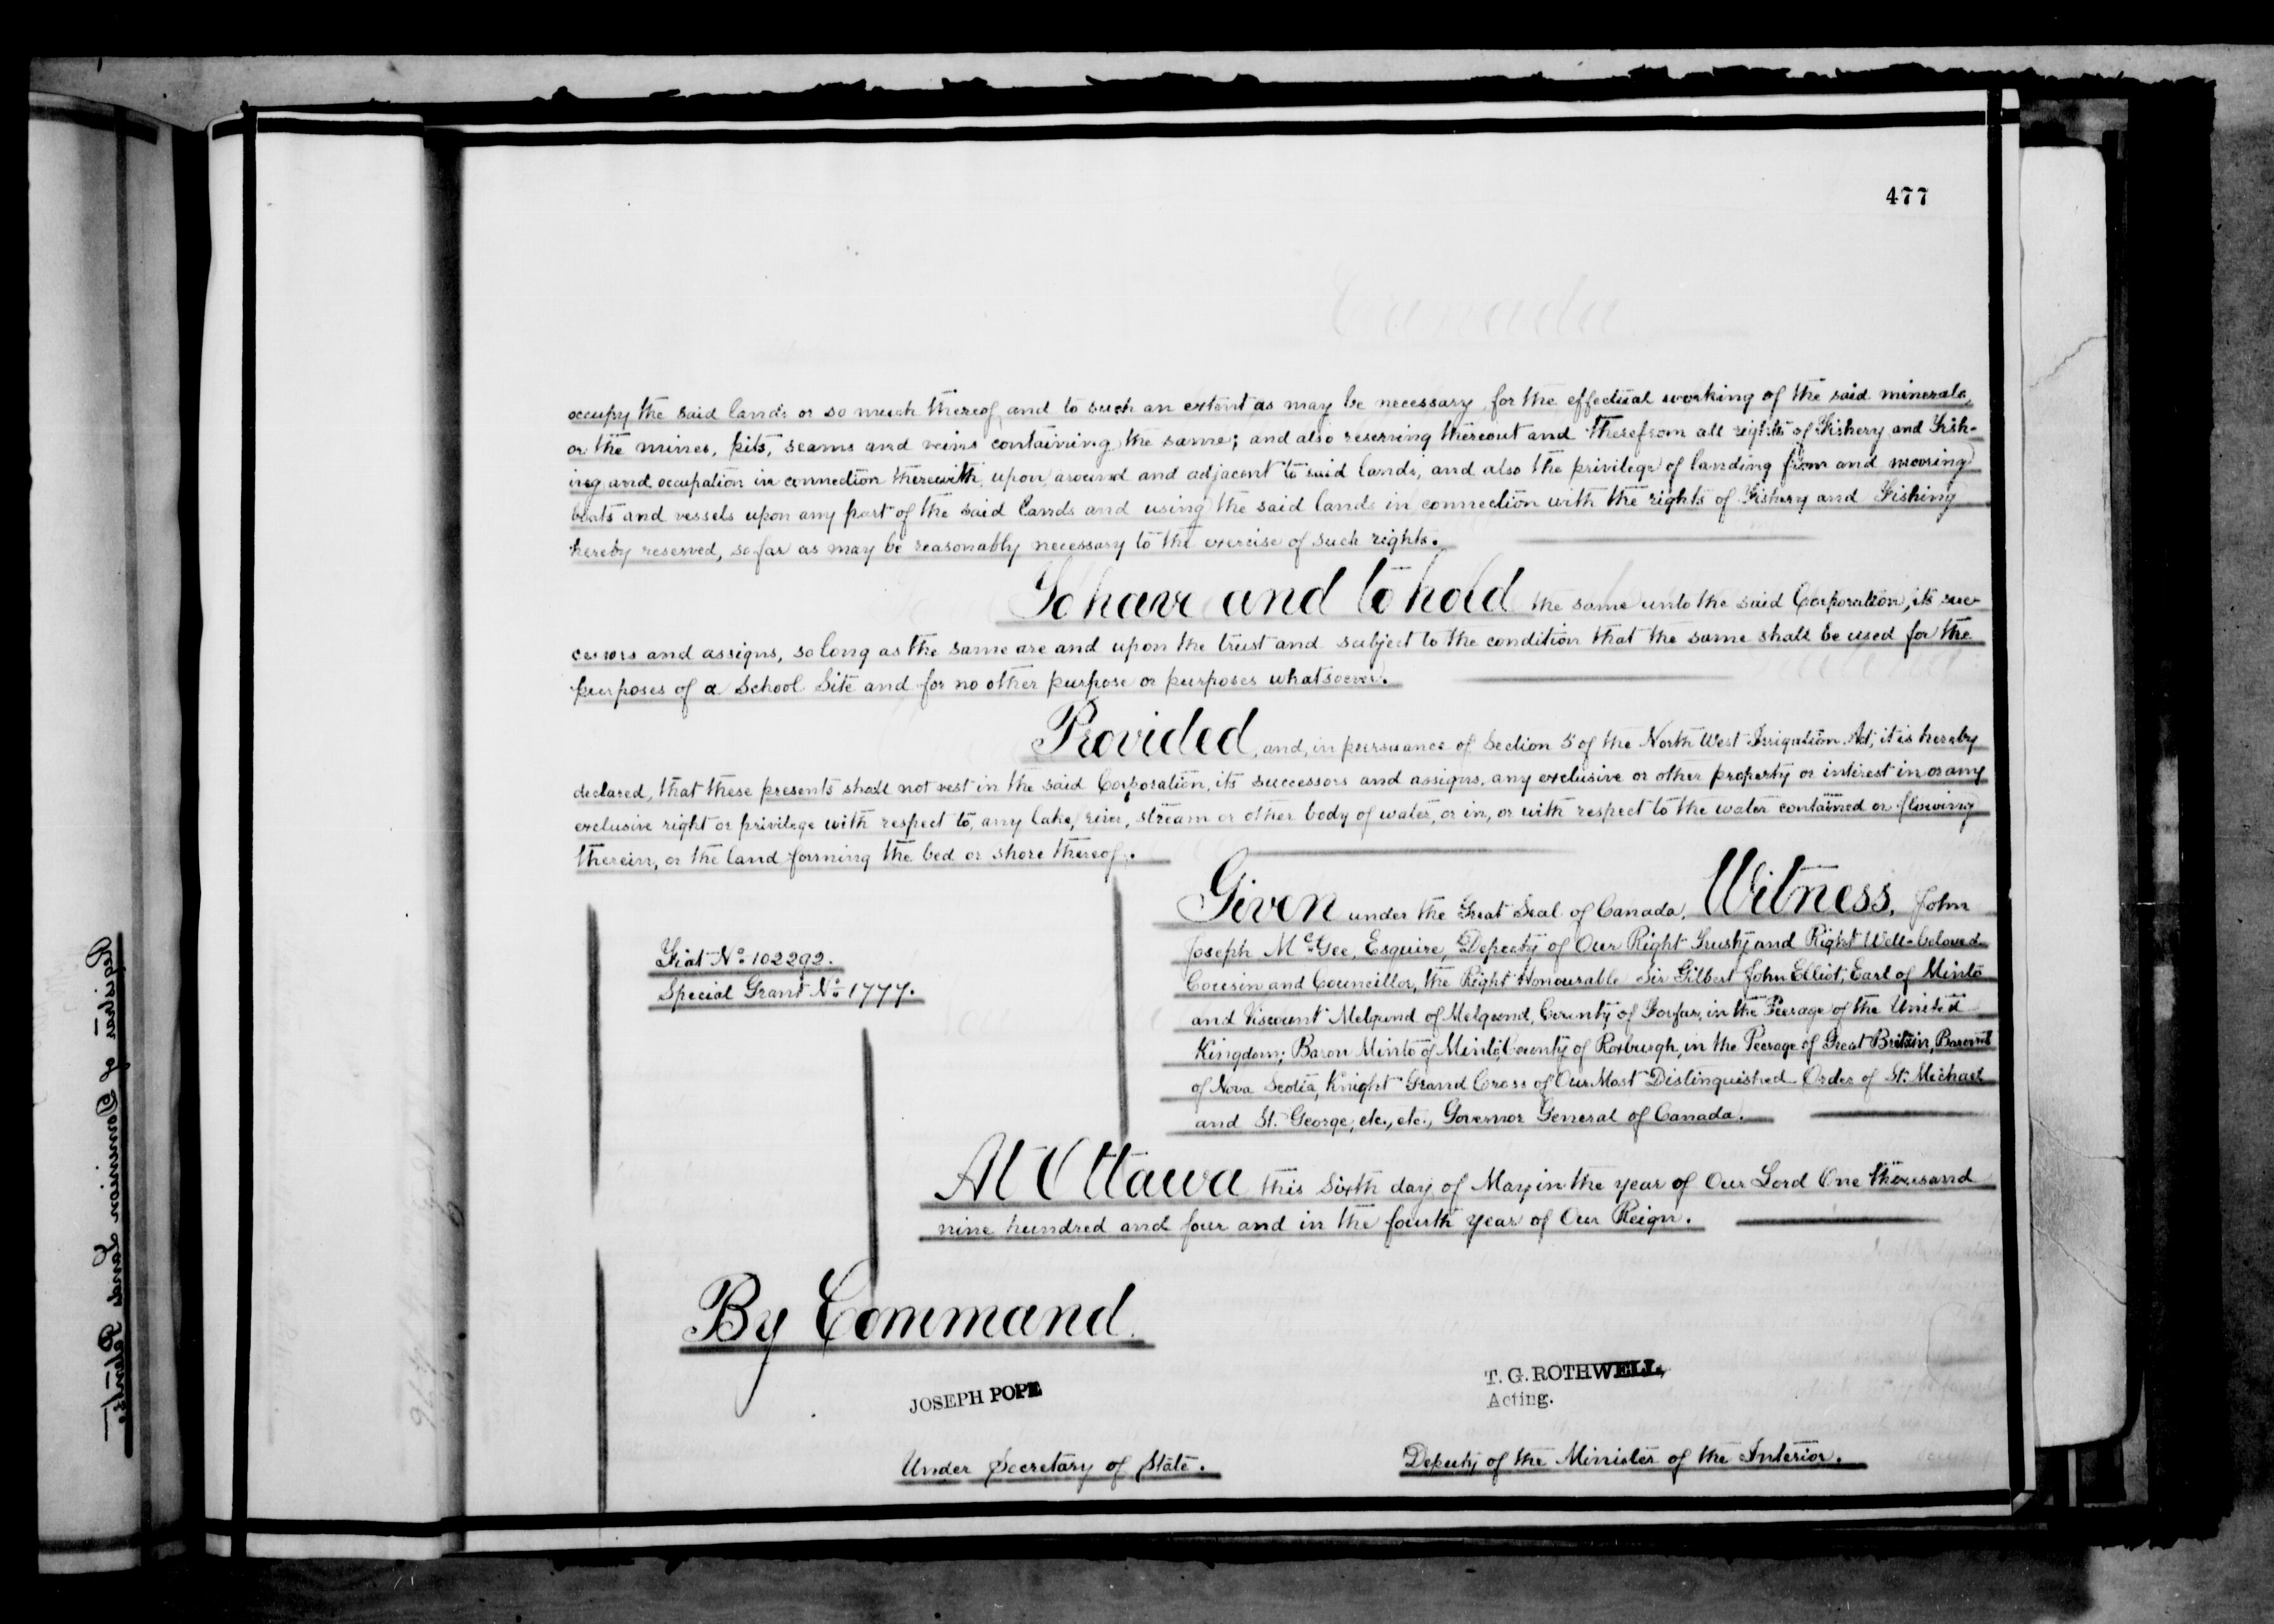 477
occupy the said lands or so much thereof and to such an extent as may be necessary for the effectual working of the said minerals,
or the mines, pits, seams and veins containing the same; and also reserving thereout and therefrom all rights of Fishery and Fish-
ing and occupation in connection therewith, upon, around and adjacent to said lands, and also the privilege of landing from and mooring
boats and vessels upon any part of the said lands and using the said lands in connection with the rights of Fishery and Fishing
hereby reserved, so far as may be reasonably necessary to the exercise of such rights.
To have and to hold the same unto the said Corporation, its suc-
cessors and assigns, so long as the same are and upon the trust and subject to the condition that the same shall be used for the
purposes of a School Site and for no other purpose or purposes whatsoever.
Provided, and, in pursuance of Section 5 of the North West Irrigation Act, it is hereby
declared, that these presents shall not vest in the said Corporation, its successors and assigns, any exclusive or other property or interest in or any
exclusive right or privilege with respect to, any lake, river, stream or other body of water, or in, or with respect to the water contained or flowing
therein, or the land forming the bed or shore thereof.
Given under the Great Seal of Canada. Witness, John
Joseph McGee, Esquire, Deputy of Our Right Trusty and Right Well-beloved
Cousin and Councillor, the Right Honourable Sir Gilbert John Elliot, Earl of Minto
and Viscount Melgund of Melgund, County of Forfar, in the Peerage of the United
Kingdom; Baron Minto of Minto, County of Roxburgh, in the Peerage of Great Britain, Baronet
of Nova Scotia, Knight Grand Cross of Our Most Distinguished Order of St. Michael
and St. George, etc., etc., Governor General of Canada.
Fiat No. 102292.
Special Grant No. 1777.
At Ottawa this sixth day of May in the year of Our Lord One thousand
nine hundred and four and in the fourth year of Our Reign.
By Command.
JOSEPH POPE
Under Secretary of State.
T. G. ROTHWELL,
Acting.
Deputy of the Minister of the Interior.
Registrar of Dominion Lands Patents